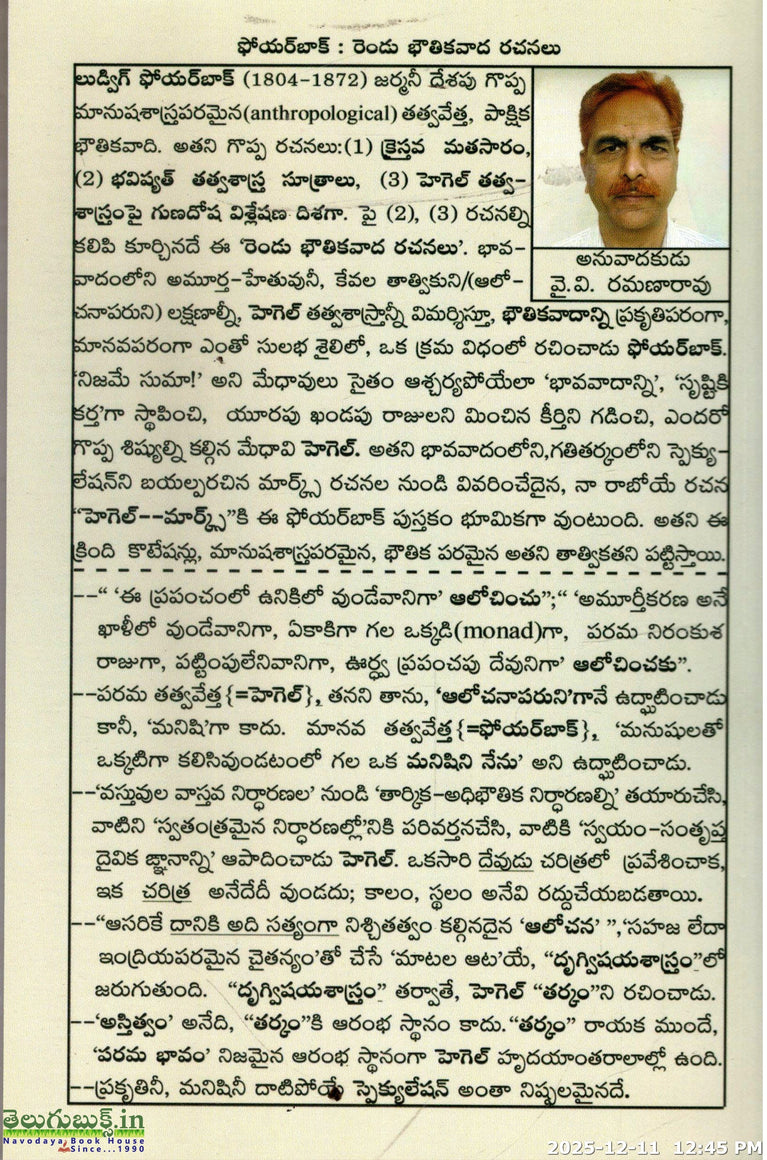 ఫోయర్‌బాక్ : రెండు భౌతికవాద రచనలు
లుడ్విగ్ ఫోయర్‌బాక్ (1804-1872) జర్మనీ దేశపు గొప్ప
మానుషశాస్త్రపరమైన(anthropological) తత్వవేత్త, పాక్షిక
భౌతికవాది. అతని గొప్ప రచనలు:(1) క్రైస్తవ మతసారం,
(2) భవిష్యత్ తత్వశాస్త్ర సూత్రాలు, (3) హెగెల్ తత్వ-
శాస్త్రంపై గుణదోష విశ్లేషణ దిశగా. పై (2), (3) రచనల్ని
కలిపి కూర్చినదే ఈ ‘రెండు భౌతికవాద రచనలు’. భావ-
వాదంలోని అమూర్త-హేతువునీ, కేవల తాత్వికుని/(ఆలో-
చనాపరుని) లక్షణాల్నీ, హెగెల్ తత్వశాస్త్రాన్నీ విమర్శిస్తూ, భౌతికవాదాన్ని ప్రకృతిపరంగా,
మానవపరంగా ఎంతో సులభ శైలిలో, ఒక క్రమ విధంలో రచించాడు ఫోయర్‌బాక్.
‘నిజమే సుమా!’ అని మేధావులు సైతం ఆశ్చర్యపోయేలా ‘భావవాదాన్ని’, ‘సృష్టికి
కర్త’గా స్థాపించి, యూరపు ఖండపు రాజులని మించిన కీర్తిని గడించి, ఎందరో
గొప్ప శిష్యుల్ని కల్గిన మేధావి హెగెల్. అతని భావవాదంలోని,గతితర్కంలోని స్పెక్యు-
లేషన్‌ని బయల్పరచిన మార్క్స్ రచనల నుండి వివరించేదైన, నా రాబోయే రచన
“హెగెల్--మార్క్స్”కి ఈ ఫోయర్‌బాక్ పుస్తకం భూమికగా వుంటుంది. అతని ఈ
క్రింది కొటేషన్లు, మానుషశాస్త్రపరమైన, భౌతిక పరమైన అతని తాత్వికతని పట్టిస్తాయి.
అనువాదకుడు
వై.వి. రమణారావు
--“ ‘ఈ ప్రపంచంలో ఉనికిలో వుండేవానిగా’ ఆలోచించు”;“ ‘అమూర్తీకరణ అనే
ఖాళీలో వుండేవానిగా, ఏకాకిగా గల ఒక్కడి(monad)గా, పరమ నిరంకుశ
రాజుగా, పట్టింపులేనివానిగా, ఊర్ధ్వ ప్రపంచపు దేవునిగా’ ఆలోచించకు”.
--పరమ తత్వవేత్త{=హెగెల్}, తనని తాను, ‘ఆలోచనాపరుని’గానే ఉద్ఘాటించాడు
కానీ, ‘మనిషి’గా కాదు. మానవ తత్వవేత్త{=ఫోయర్‌బాక్}, ‘మనుషులతో
ఒక్కటిగా కలిసివుండటంలో గల ఒక మనిషిని నేను’ అని ఉద్ఘాటించాడు.
--‘వస్తువుల వాస్తవ నిర్ధారణల’ నుండి ‘తార్కిక-అధిభౌతిక నిర్ధారణల్ని’ తయారుచేసి,
వాటిని ‘స్వతంత్రమైన నిర్ధారణల్లో’నికి పరివర్తనచేసి, వాటికి ‘స్వయం-సంతృప్త
దైవిక జ్ఞానాన్ని’ ఆపాదించాడు హెగెల్. ఒకసారి దేవుడు చరిత్రలో ప్రవేశించాక,
ఇక చరిత్ర అనేదేదీ వుండదు; కాలం, స్థలం అనేవి రద్దుచేయబడతాయి.
--“ఆసరికే దానికి అది సత్యంగా నిశ్చితత్వం కల్గినదైన ‘ఆలోచన’ ”,‘సహజ లేదా
ఇంద్రియపరమైన చైతన్యం’తో చేసే ‘మాటల ఆట’యే, “దృగ్విషయశాస్త్రం”లో
జరుగుతుంది. “దృగ్విషయశాస్త్రం” తర్వాతే, హెగెల్ “తర్కం”ని రచించాడు.
--‘అస్తిత్వం’ అనేది, “తర్కం”కి ఆరంభ స్థానం కాదు.“తర్కం” రాయక ముందే,
‘పరమ భావం’ నిజమైన ఆరంభ స్థానంగా హెగెల్ హృదయాంతరాలాల్లో ఉంది.
--ప్రకృతినీ, మనిషినీ దాటిపోయే స్పెక్యులేషన్ అంతా నిష్ఫలమైనదే.
తెలుగుబుక్స్.in
Navodaya Book House
Since...1990
2025-12-11 12:45 PM